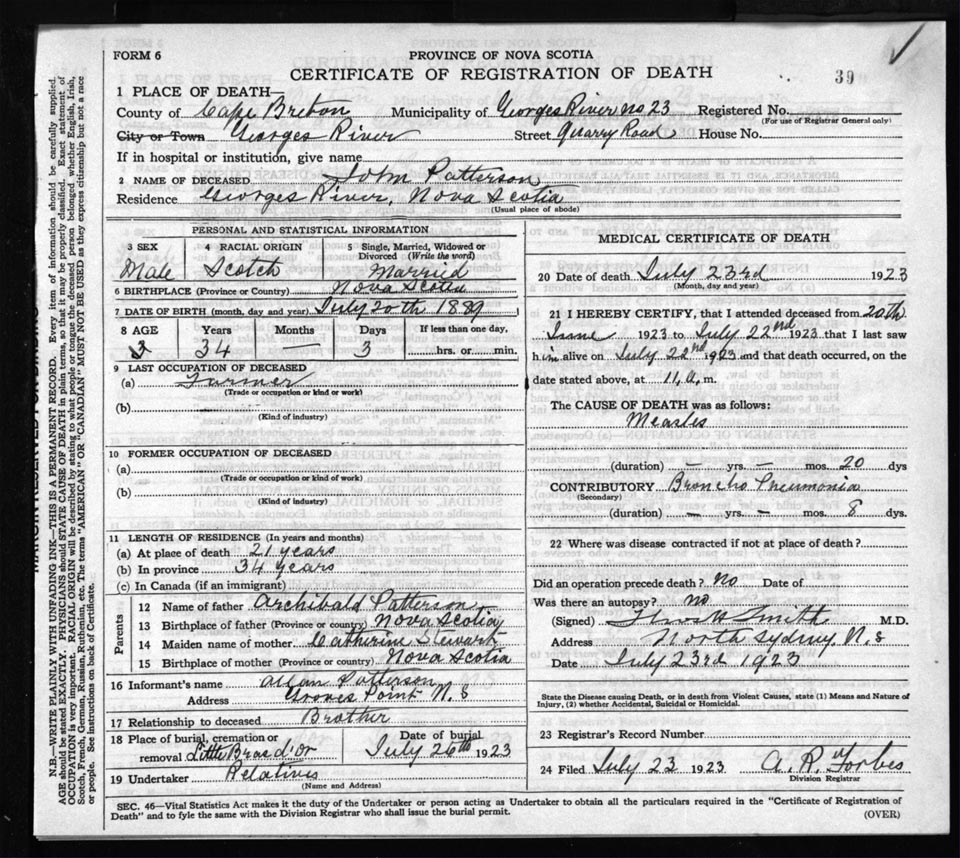 FORM 6
PROVINCE OF NOVA SCOTIA
CERTIFICATE OF REGISTRATION OF DEATH
39
1 PLACE OF DEATH—
County of Cape Breton Municipality of Georges River No 23 Registered No.
(For use of Registrar General only)
City or Town Georges River Street Quarry Road House No.
If in hospital or institution, give name
2 NAME OF DECEASED John Patterson
Residence Georges River, Nova Scotia
(Usual place of abode)
PERSONAL AND STATISTICAL INFORMATION
3 SEX 4 RACIAL ORIGIN 5 Single, Married, Widowed or Divorced (Write the word)
Male Scotch Married
6 BIRTHPLACE (Province or Country) Nova Scotia
7 DATE OF BIRTH (month, day and year) July 20th 1889
8 AGE Years Months Days If less than one day,
34 — 3 hrs. or min.
9 LAST OCCUPATION OF DECEASED
(a) Farmer
(Trade or occupation or kind or work)
(b)
(Kind of industry)
10 FORMER OCCUPATION OF DECEASED
(a)
(Trade or occupation or kind of work)
(b)
(Kind of industry)
11 LENGTH OF RESIDENCE (In years and months)
(a) At place of death 21 years
(b) In province 34 years
(c) In Canada (if an immigrant)
Parents
12 Name of father Archibald Patterson
13 Birthplace of father (Province or country) Nova Scotia
14 Maiden name of mother Catherine Stewart
15 Birthplace of mother (Province or country) Nova Scotia
16 Informant's name Allan Patterson
Address Groves Point N. S
17 Relationship to deceased Brother
18 Place of burial, cremation or removal Little Bras d'Or Date of burial July 26th 1923
19 Undertaker Relatives
(Name and Address)
MEDICAL CERTIFICATE OF DEATH
20 Date of death July 23rd 1923
(Month, day and year)
21 I HEREBY CERTIFY, that I attended deceased from 20th
June 1923 to July 22nd 1923 that I last saw
him alive on July 22nd 1923 and that death occurred, on the
date stated above, at 11, a, m.
The CAUSE OF DEATH was as follows:
Measles
(duration) — yrs. — mos. 20 dys
CONTRIBUTORY Broncho Pneumonia
(Secondary)
(duration) — yrs. — mos. 8 dys.
22 Where was disease contracted if not at place of death?
Did an operation precede death? No Date of
Was there an autopsy? no
(Signed) Smith M.D.
Address North Sydney N. S
Date July 23rd 1923
State the Disease causing Death, or in death from Violent Causes, state (1) Means and Nature of
Injury, (2) whether Accidental, Suicidal or Homicidal.
23 Registrar's Record Number
24 Filed July 23 1923 A. R. Forbes
Division Registrar
SEC. 46—Vital Statistics Act makes it the duty of the Undertaker or person acting as Undertaker to obtain all the particulars required in the "Certificate of Registration of
Death" and to fyle the same with the Division Registrar who shall issue the burial permit.
(OVER)
N.B.—WRITE PLAINLY WITH UNFADING INK—THIS IS A PERMANENT RECORD. Every item of information should be carefully supplied.
AGE should be stated EXACTLY. PHYSICIANS should STATE CAUSE OF DEATH in plain terms, so that it may be properly classified. Exact statement of
OCCUPATION is very important. RACIAL ORIGIN will be described by stating to what people or tongue the deceased person belonged, whether English, Irish,
Scotch, French, German, Russian, Ruthenian, etc. The terms "AMERICAN" OR "CANADIAN" MUST NOT BE USED as they express citizenship but not a race
or people. See instructions on back of Certificate.